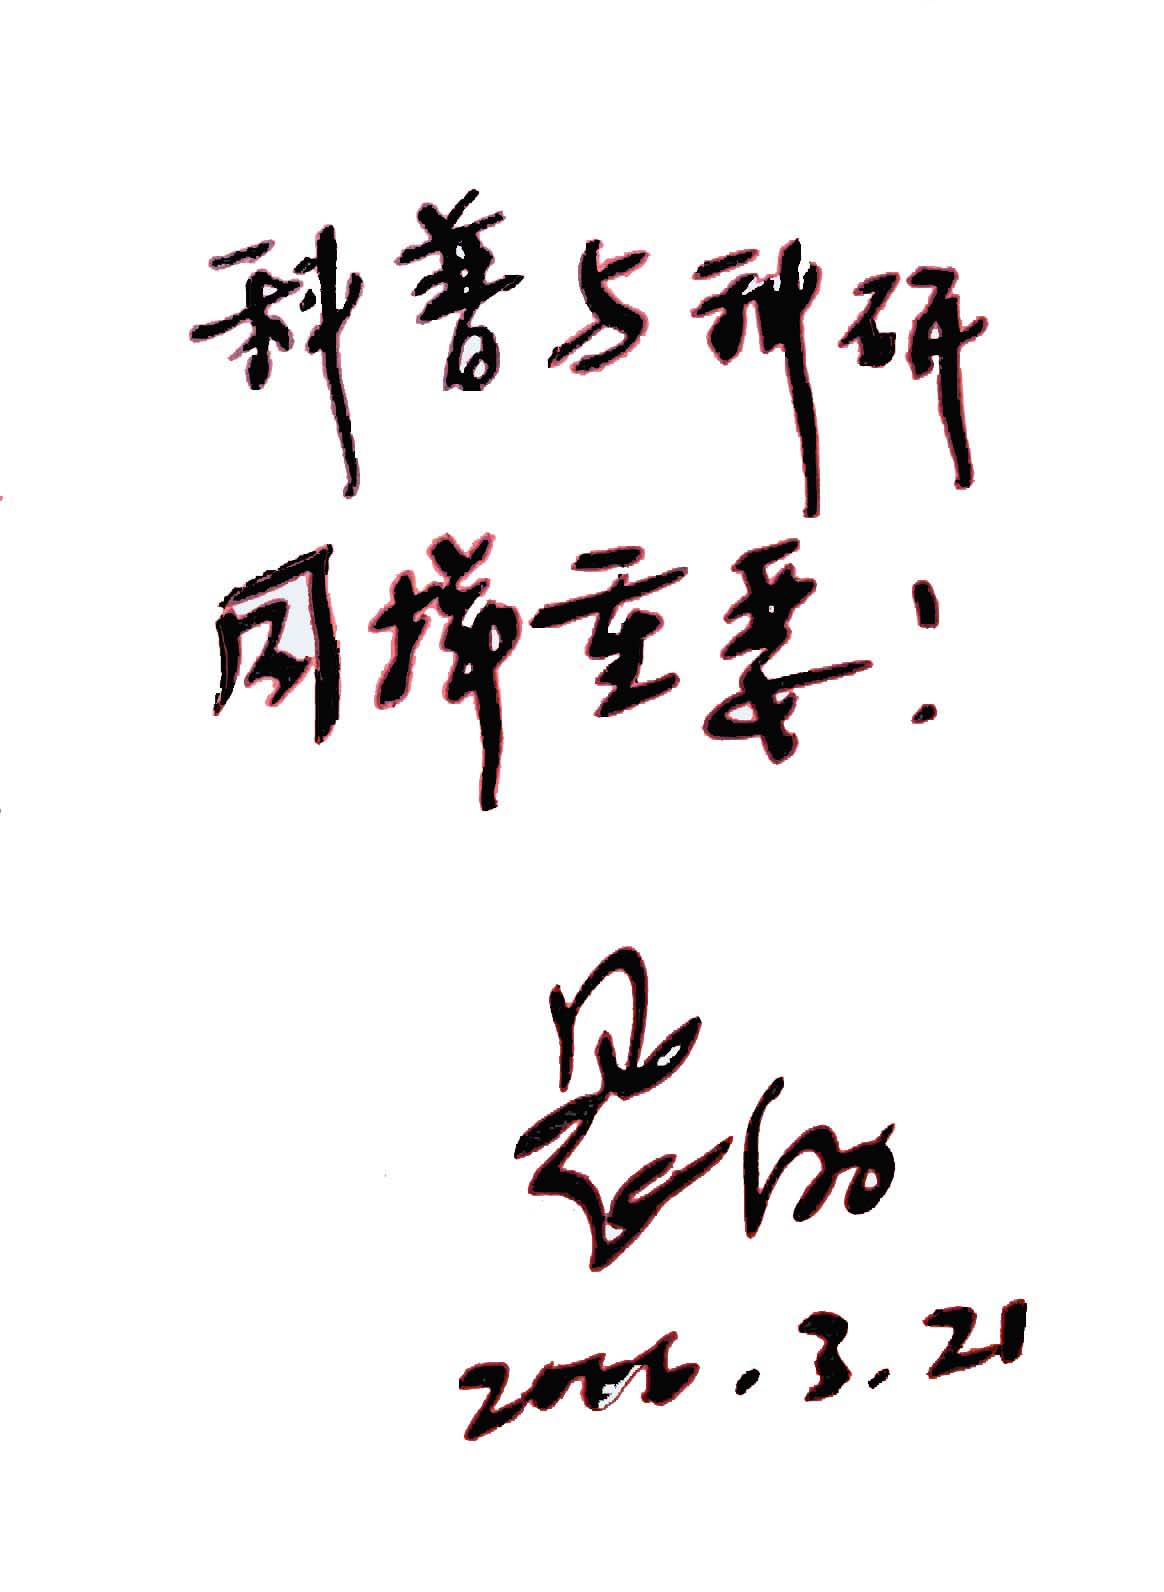 科普与科研
同样重要!
2006.3.21